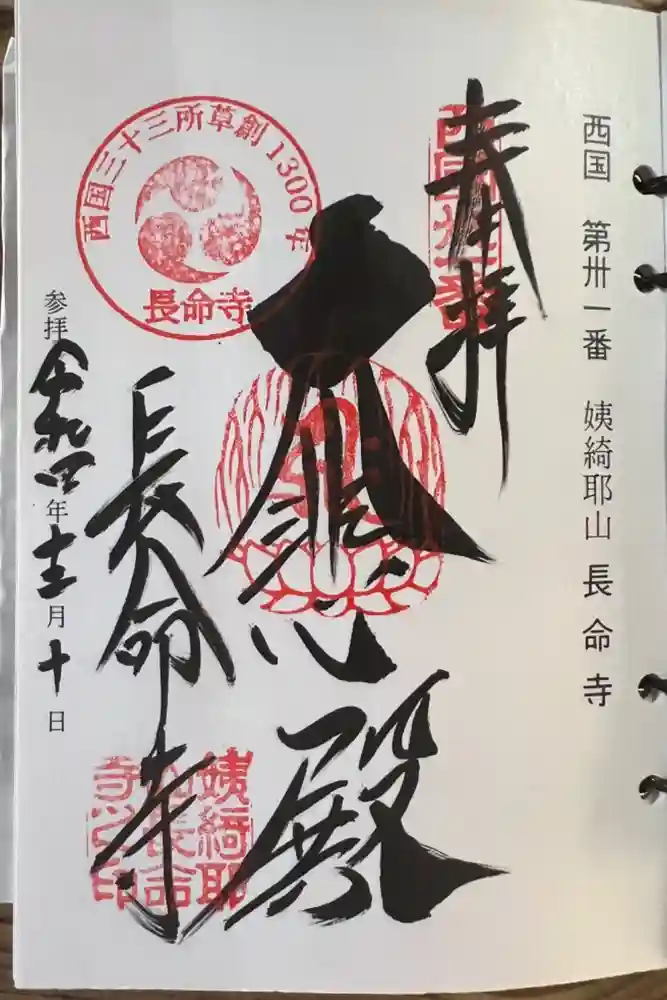 西国 第卅一番 姨綺耶山 長命寺
奉拝
西国卅一番
大悲殿
西国三十三所草創1300年
長命寺
長命寺
姨綺耶
山長命
寺之印
参拝 令和四年十二月十日